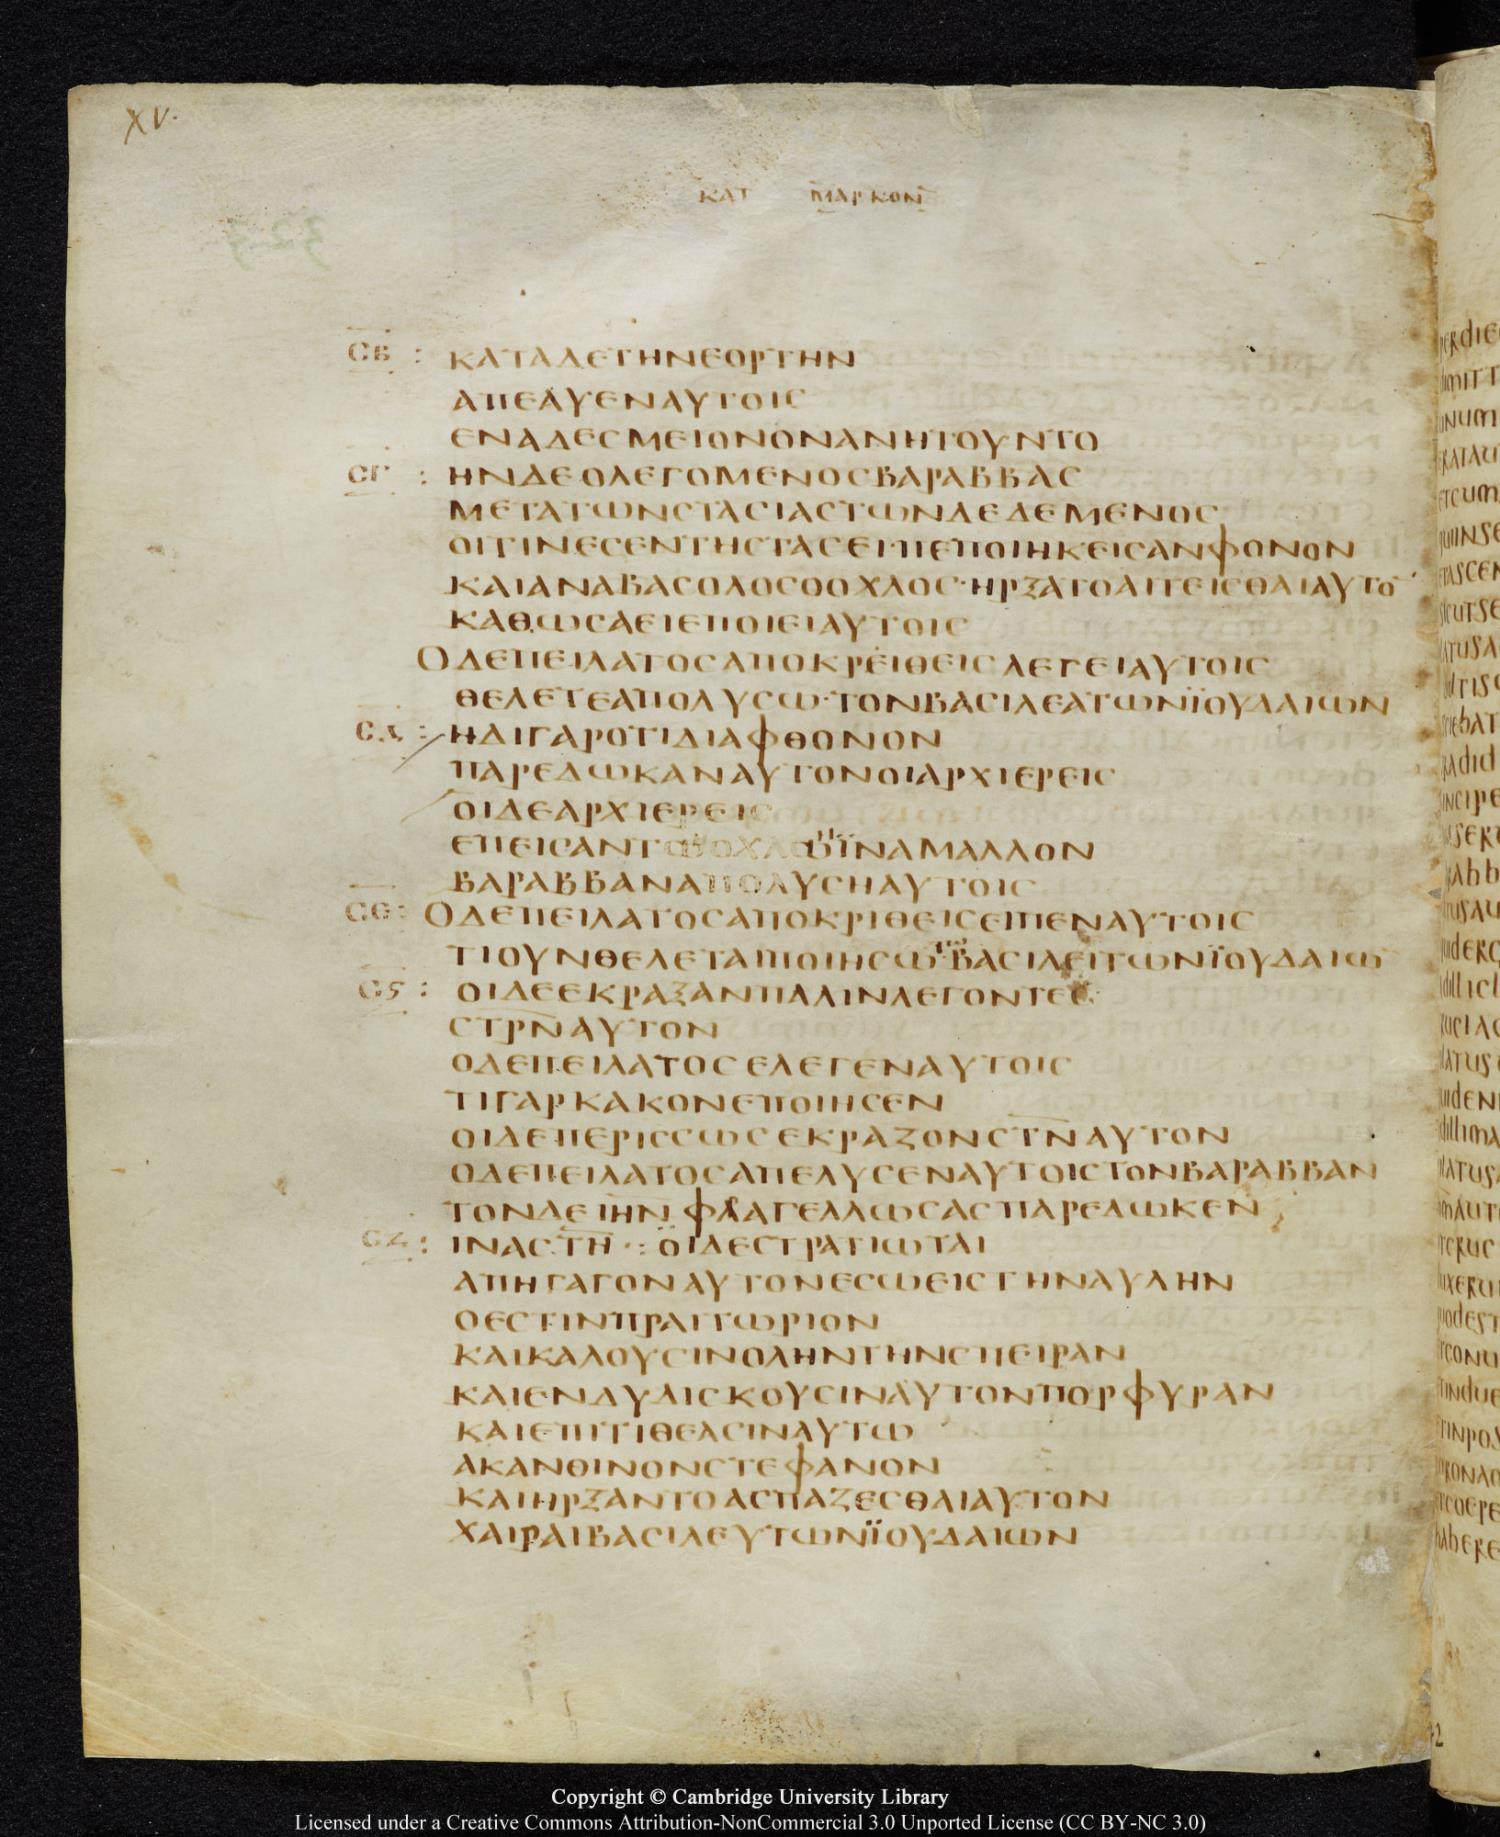 XV.
ΚΑΤ ΜΑΡΚΟΝ
ϹΒ : ΚΑΤΑΔΕΤΗΝΕΟΡΤΗΝ
ΑΠΕΛΥΕΝΑΥΤΟΙϹ
ΕΝΑΔΕϹΜΕΙΟΝΟΝΑΝΗΤΟΥΝΤΟ
ϹΓ : ΗΝΔΕΟΛΕΓΟΜΕΝΟϹΒΑΡΑΒΒΑϹ
ΜΕΤΑΤΩΝϹΤΑϹΙΑϹΤΩΝΔΕΔΕΜΕΝΟϹ
ΟΙΤΙΝΕϹΕΝΤΗϹΤΑϹΕΙΠΕΠΟΙΗΚΕΙϹΑΝΦΟΝΟΝ
ΚΑΙΑΝΑΒΑϹΟΛΟϹΟΟΧΛΟϹ·ΗΡΞΑΤΟΑΙΤΕΙϹΘΑΙΑΥΤΟ
ΚΑΘΩϹΑΕΙΕΠΟΙΕΙΑΥΤΟΙϹ
ΟΔΕΠΕΙΛΑΤΟϹΑΠΟΚΡΕΙΘΕΙϹΛΕΓΕΙΑΥΤΟΙϹ
ΘΕΛΕΤΕΑΠΟΛΥϹΩ·ΤΟΝΒΑϹΙΛΕΑΤΩΝΪΟΥΔΑΙΩΝ
ϹΔ : ΗΔΙΓΑΡΟΤΙΔΙΑΦΘΟΝΟΝ
ΠΑΡΕΔΩΚΑΝΑΥΤΟΝΟΙΑΡΧΙΕΡΕΙϹ
ΟΙΔΕΑΡΧΙΕΡΕΙϹ
ΕΠΕΙϹΑΝΤΩΟΧΛΩΪΝΑΜΑΛΛΟΝ
ΒΑΡΑΒΒΑΝΑΠΟΛΥϹΗΑΥΤΟΙϹ
ϹΕ : ΟΔΕΠΕΙΛΑΤΟϹΑΠΟΚΡΙΘΕΙϹΕΙΠΕΝΑΥΤΟΙϹ
ΤΙΟΥΝΘΕΛΕΤΑΙΠΟΙΗϹΩΒΑϹΙΛΕΙΤΩΝΪΟΥΔΑΙΩ
Ϲϛ : ΟΙΔΕΕΚΡΑΞΑΝΠΑΛΙΝΛΕΓΟΝΤΕϹ
ϹΤΡΝΑΥΤΟΝ
ΟΔΕΠΕΙΛΑΤΟϹΕΛΕΓΕΝΑΥΤΟΙϹ
ΤΙΓΑΡΚΑΚΟΝΕΠΟΙΗϹΕΝ
ΟΙΔΕΠΕΡΙϹϹΩϹΕΚΡΑΖΟΝϹΤΝΑΥΤΟΝ
ΟΔΕΠΕΙΛΑΤΟϹΑΠΕΛΥϹΕΝΑΥΤΟΙϹΤΟΝΒΑΡΑΒΒΑΝ
ΤΟΝΔΕΙΗΝΦΛΑΓΕΛΛΩϹΑϹΠΑΡΕΔΩΚΕΝ
ϹΖ : ΙΝΑϹΤΗ ·: ΟΙΔΕϹΤΡΑΤΙΩΤΑΙ
ΑΠΗΓΑΓΟΝΑΥΤΟΝΕϹΩΕΙϹΤΗΝΑΥΛΗΝ
ΟΕϹΤΙΝΠΡΑΙΤΩΡΙΟΝ
ΚΑΙΚΑΛΟΥϹΙΝΟΛΗΝΤΗΝϹΠΕΙΡΑΝ
ΚΑΙΕΝΔΥΔΙϹΚΟΥϹΙΝΑΥΤΟΝΠΟΡΦΥΡΑΝ
ΚΑΙΕΠΙΤΙΘΕΑϹΙΝΑΥΤΩ
ΑΚΑΝΘΙΝΟΝϹΤΕΦΑΝΟΝ
ΚΑΙΗΡΞΑΝΤΟΑϹΠΑΖΕϹΘΑΙΑΥΤΟΝ
ΧΑΙΡΑΙΒΑϹΙΛΕΥΤΩΝΪΟΥΔΑΙΩΝ
Copyright © Cambridge University Library
Licensed under a Creative Commons Attribution-NonCommercial 3.0 Unported License (CC BY-NC 3.0)